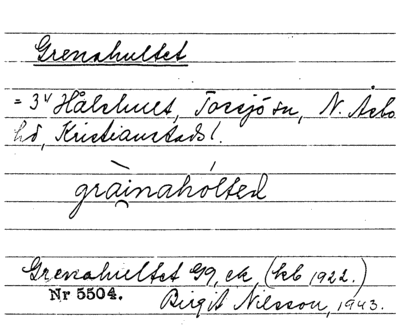 Grenahultet
= 3⁴ Hålehult, Tossjö sn, N. Åsbo
hd, Kristianstads l.
gràinahólted
Grenahultet Gg, ek, (kb 1922.)
Nr 5504. Birgit Nilsson, 1943.